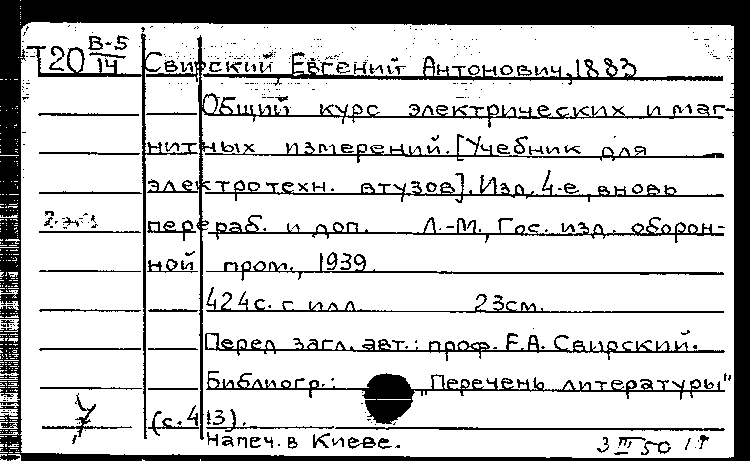 Т20 В-5/14 Свирский, Евгений Антонович, 1883
Общий курс электрических и маг-
нитных измерений. [Учебник для
электротехн. втузов]. Изд. 4-е, вновь
2 экз перераб. и доп. Л.-М., Гос. изд. оборон-
ной пром., 1939.
424с. с илл. 23см.
Перед загл. авт.: проф. Е.А. Свирский.
Библиогр.: „Перечень литературы"
(с. 413).
Напеч. в Киеве. 3 III 50